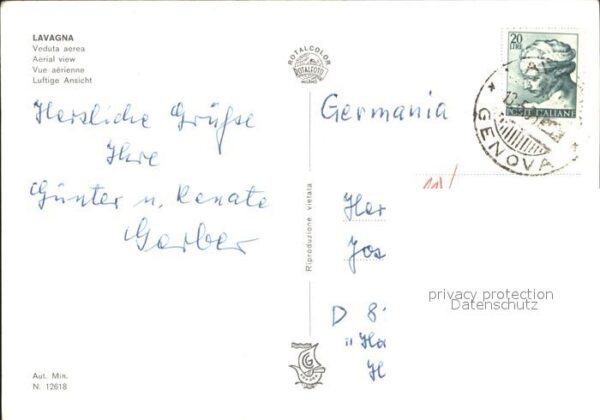 LAVAGNA
Veduta aerea
Aerial view
Vue aérienne
Luftige Ansicht
ROTALCOLOR
ROTALFOTO
MILANO
20
LIRE
POSTE ITALIANE
GENOVA
Germania
Herzliche Grüße
Ihre
Günter u. Renate
Gerber
Riproduzione vietata
Her
Jos
privacy protection
Datenschutz
D 8
"Ha
H
Aut. Min.
N. 12618